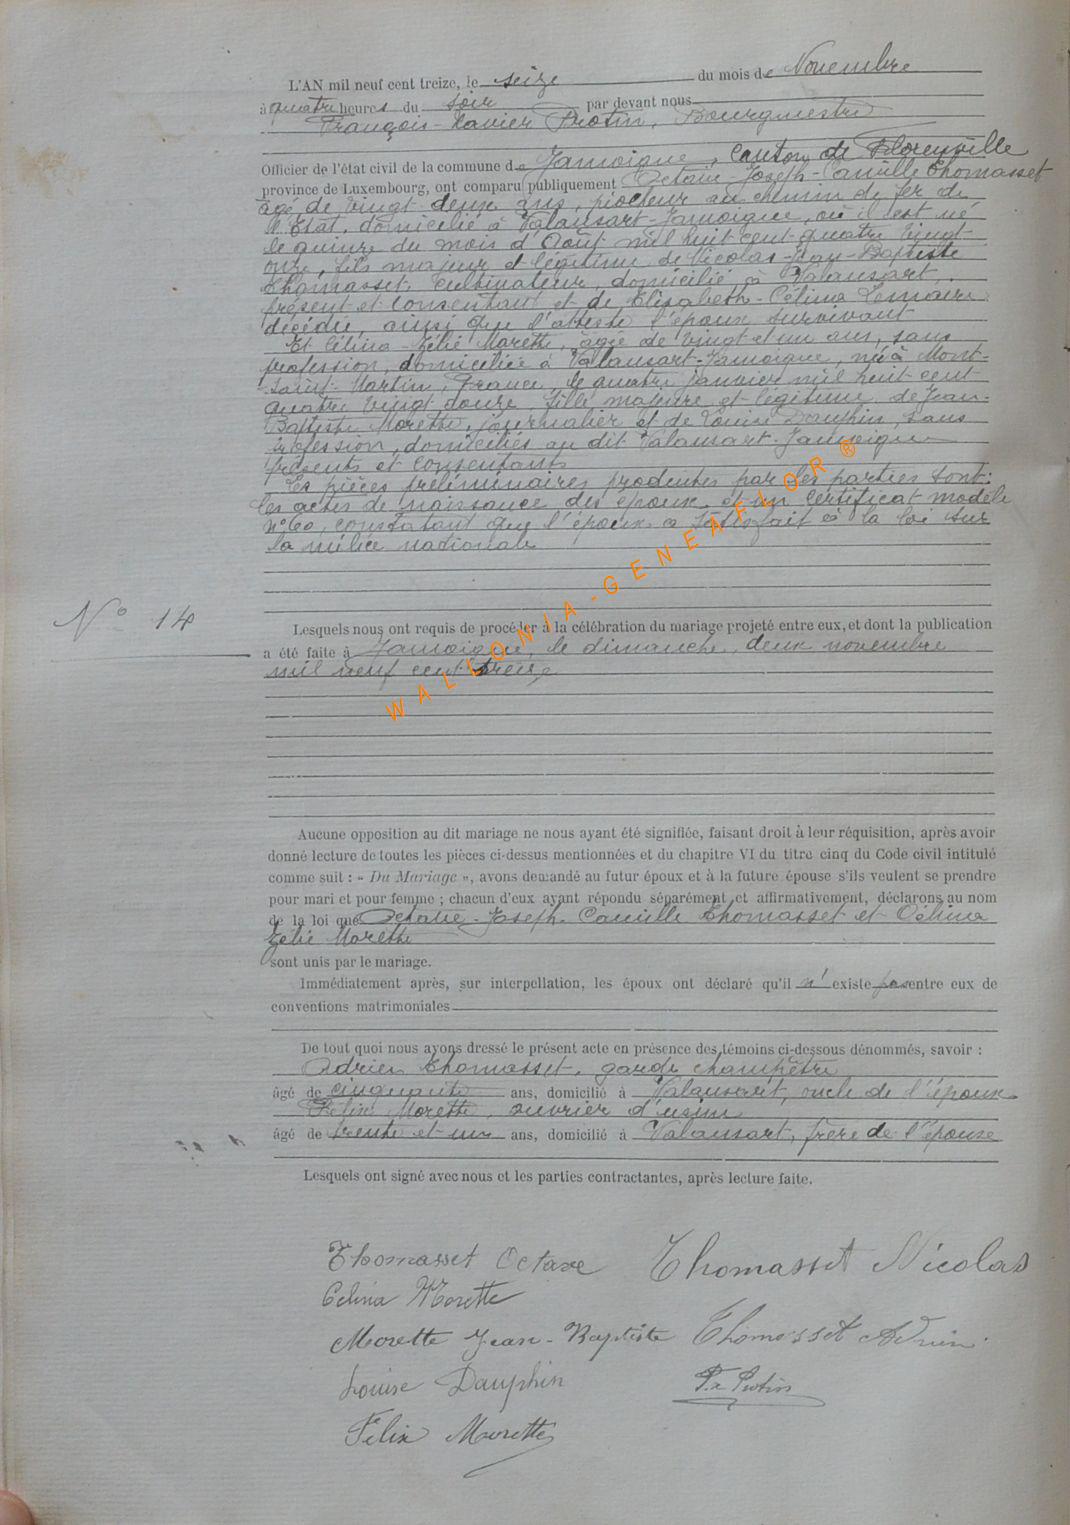 L'AN mil neuf cent treize, le seize du mois de Novembre
à quatre heures du soir par devant nous
François-Xavier Protin, Bourgmestre
Officier de l'état civil de la commune de Jamoigne, canton de Florenville
province de Luxembourg, ont comparu publiquement Octave-Joseph-Camille Thomasset
âgé de vingt-deux ans, piocheur au chemin de fer de
l'Etat, domicilié à Valansart-Jamoigne, où il est né
le quinze du mois d'Août mil huit cent quatre vingt
onze, fils majeur et légitime de Nicolas-Jean-Baptiste
Thomasset, cultivateur, domicilié à Valansart,
présent et consentant et de Elisabeth-Célina Lemaire
décédée, ainsi que l'atteste l'époux survivant
Et Célina-Zélie Morette, âgée de vingt et un ans, sans
profession, domiciliée à Valansart-Jamoigne, née à Mont-
Saint-Martin, France, le quatre janvier mil huit cent
quatre vingt douze, fille majeure et légitime de Jean-
Baptiste Morette, journalier et de Louise Dauphin, sans
profession, domiciliés au dit Valansart-Jamoigne
présents et consentants
Les pièces préliminaires produites par les parties sont:
les actes de naissance des époux et un certificat modèle
n° 60, constatant que l'époux a satisfait à la loi sur
la milice nationale
N° 14
Lesquels nous ont requis de procéder à la célébration du mariage projeté entre eux, et dont la publication
a été faite à Jamoigne, le dimanche, deux novembre
mil neuf cent treize
WALLONIA-GENEAFLOR ®
Aucune opposition au dit mariage ne nous ayant été signifiée, faisant droit à leur réquisition, après avoir
donné lecture de toutes les pièces ci-dessus mentionnées et du chapitre VI du titre cinq du Code civil intitulé
comme suit : « Du Mariage », avons demandé au futur époux et à la future épouse s'ils veulent se prendre
pour mari et pour femme ; chacun d'eux ayant répondu séparément et affirmativement, déclarons au nom
de la loi que Octave-Joseph-Camille Thomasset et Célina
Zélie Morette
sont unis par le mariage.
Immédiatement après, sur interpellation, les époux ont déclaré qu'il n'existe pas entre eux de
conventions matrimoniales
De tout quoi nous avons dressé le présent acte en présence des témoins ci-dessous dénommés, savoir :
Adrien Thomasset, garde champêtre
âgé de cinquante ans, domicilié à Valansart, oncle de l'époux
Félix Morette, ouvrier d'usine
âgé de trente et un ans, domicilié à Valansart, frère de l'épouse
Lesquels ont signé avec nous et les parties contractantes, après lecture faite.
Thomasset Octave Thomasset Nicolas
Celina Morette
Morette Jean-Baptiste Thomasset Adrien
Louise Dauphin Fx Protin
Félix Morette